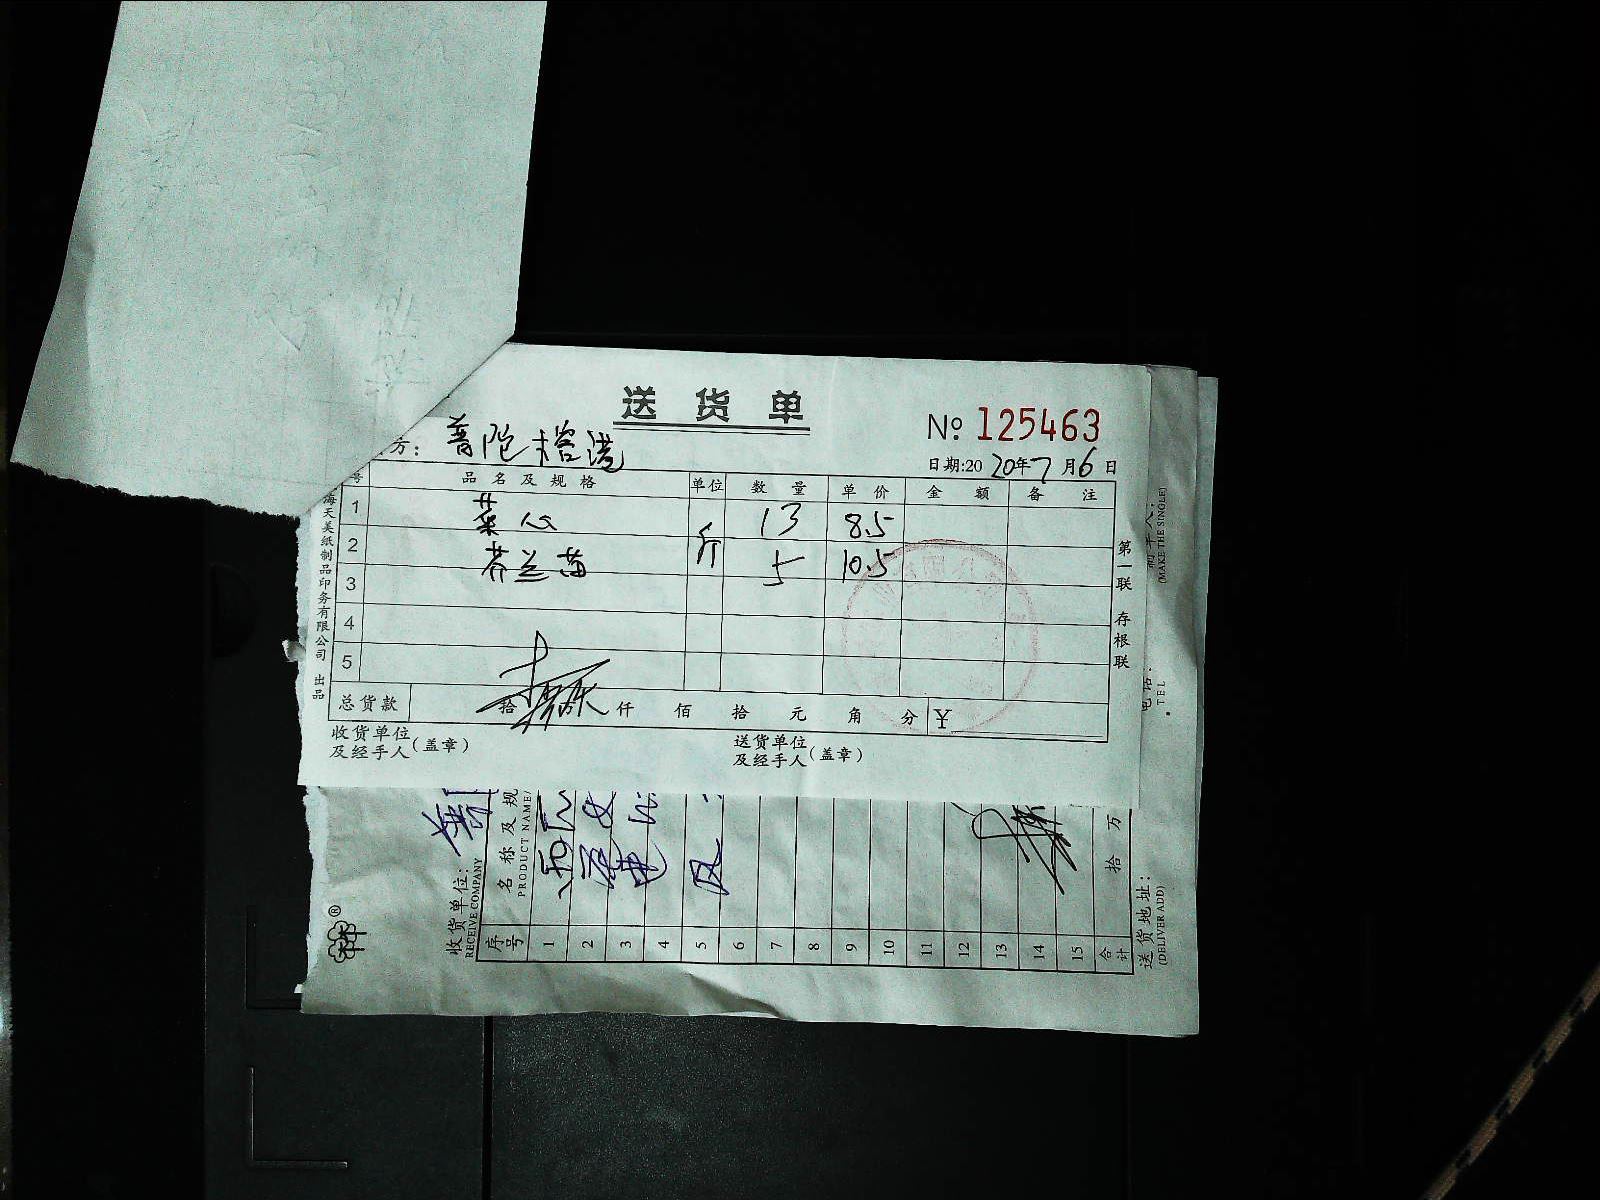 送货单
№ 125463
方: 普陀榕港
日期:2020年7月6日
号 品名及规格 单位 数量 单价 金额 备注
1 菜心 斤 13 8.5
2 芥兰苗 5 10.5
3
4
5
总货款 拾 仟 佰 拾 元 角 分 ¥
收货单位及经手人(盖章)
送货单位及经手人(盖章)
第一联 存根联
海天美纸制品印务有限公司 出品
(MAKE THE SINGLE)
TEL
收货单位: 普
RECEIVE COMPANY
序号 名称及规
PRODUCT NAME/
1
2
3
4
5
6
7
8
9
10
11
12
13
14
15
合计 拾 万
送货地址:
(DELIVER ADD)